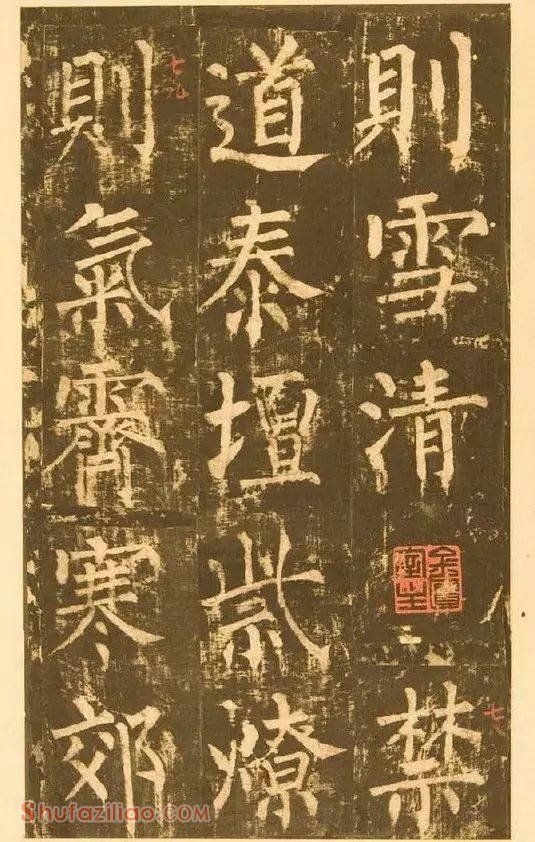 則雪清禁
道泰壇祡燎
則氣霽寒郊
七九
Shufaziliao.com